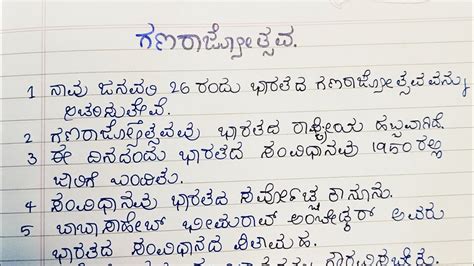 ಗಣರಾಜ್ಯೋತ್ಸವ.
1 ನಾವು ಜನವರಿ 26 ರಂದು ಭಾರತದ ಗಣರಾಜ್ಯೋತ್ಸವವನ್ನು
ಆಚರಿಸುತ್ತೇವೆ.
2 ಗಣರಾಜ್ಯೋತ್ಸವವು ಭಾರತದ ರಾಷ್ಟ್ರೀಯ ಹಬ್ಬವಾಗಿದೆ.
3 ಈ ದಿನದಂದು ಭಾರತದ ಸಂವಿಧಾನವು 1950 ರಲ್ಲಿ
ಜಾರಿಗೆ ಬಂದಿತು.
4 ಸಂವಿಧಾನವು ಭಾರತದ ಸರ್ವೋಚ್ಚ ಕಾನೂನು.
5 ಬಾಬಾಸಾಹೇಬ್ ಭೀಮರಾವ್ ಅಂಬೇಡ್ಕರ್ ಅವರು
ಭಾರತದ ಸಂವಿಧಾನದ ಪಿತಾಮಹ.